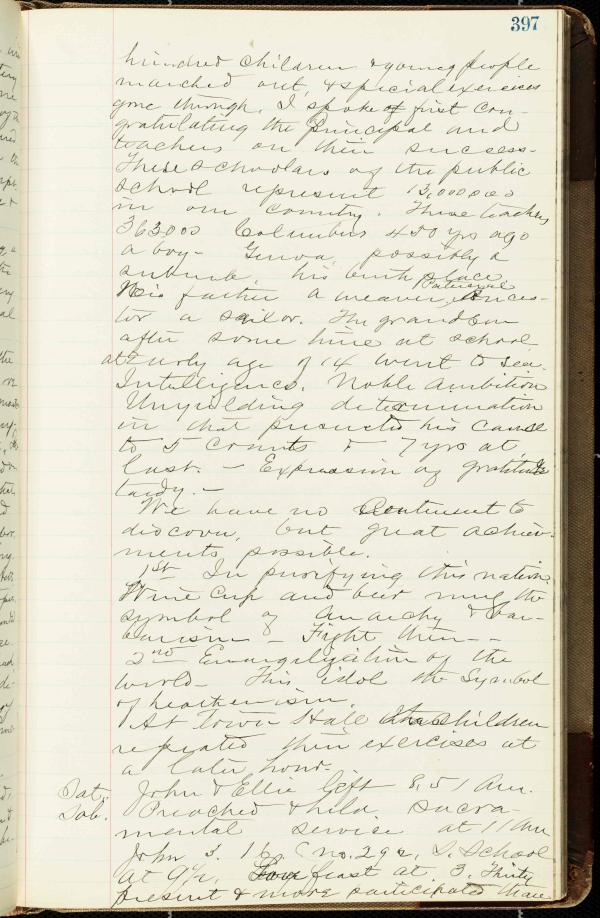 397
hundred children & young people
marched out & special exercises
gone through. I spoke of first con-
gratulating the Principal and
teachers on their success-
These scholars of the public
school represent 13,000000
in our country. These teachers
363000 Columbus 400 yrs ago
a boy - Genoa, possibly a
suburb, his birth place
His father a weaver, Paternal ances-
tor a sailor. The grand son
after some time at school
at early age of 14 went to sea.
Intelligence. Noble ambition
Unyielding determination
in that presented his cause
to 5 Courts & 7 yrs at
last. - Expression of gratitude
tardy. -
We have no Continent to
discover, but great achieve-
ments possible.
1st In purifying this nation.
Wine cup and beer mug the
symbol of anarchy & bar-
barism - Fight them - -
2nd Evangelization of the
world - This idol the symbol
of heathenism.
At Town Hall the children
repeated their exercises at
a later hour.
Sat. John & Ellie left 8,51 Am.
Sab. Preached & held sacra-
mental service at 11 Am
John 3.16. (no. 292, S. School
at 9½. Love feast at 3. Thirty
present & more participated than